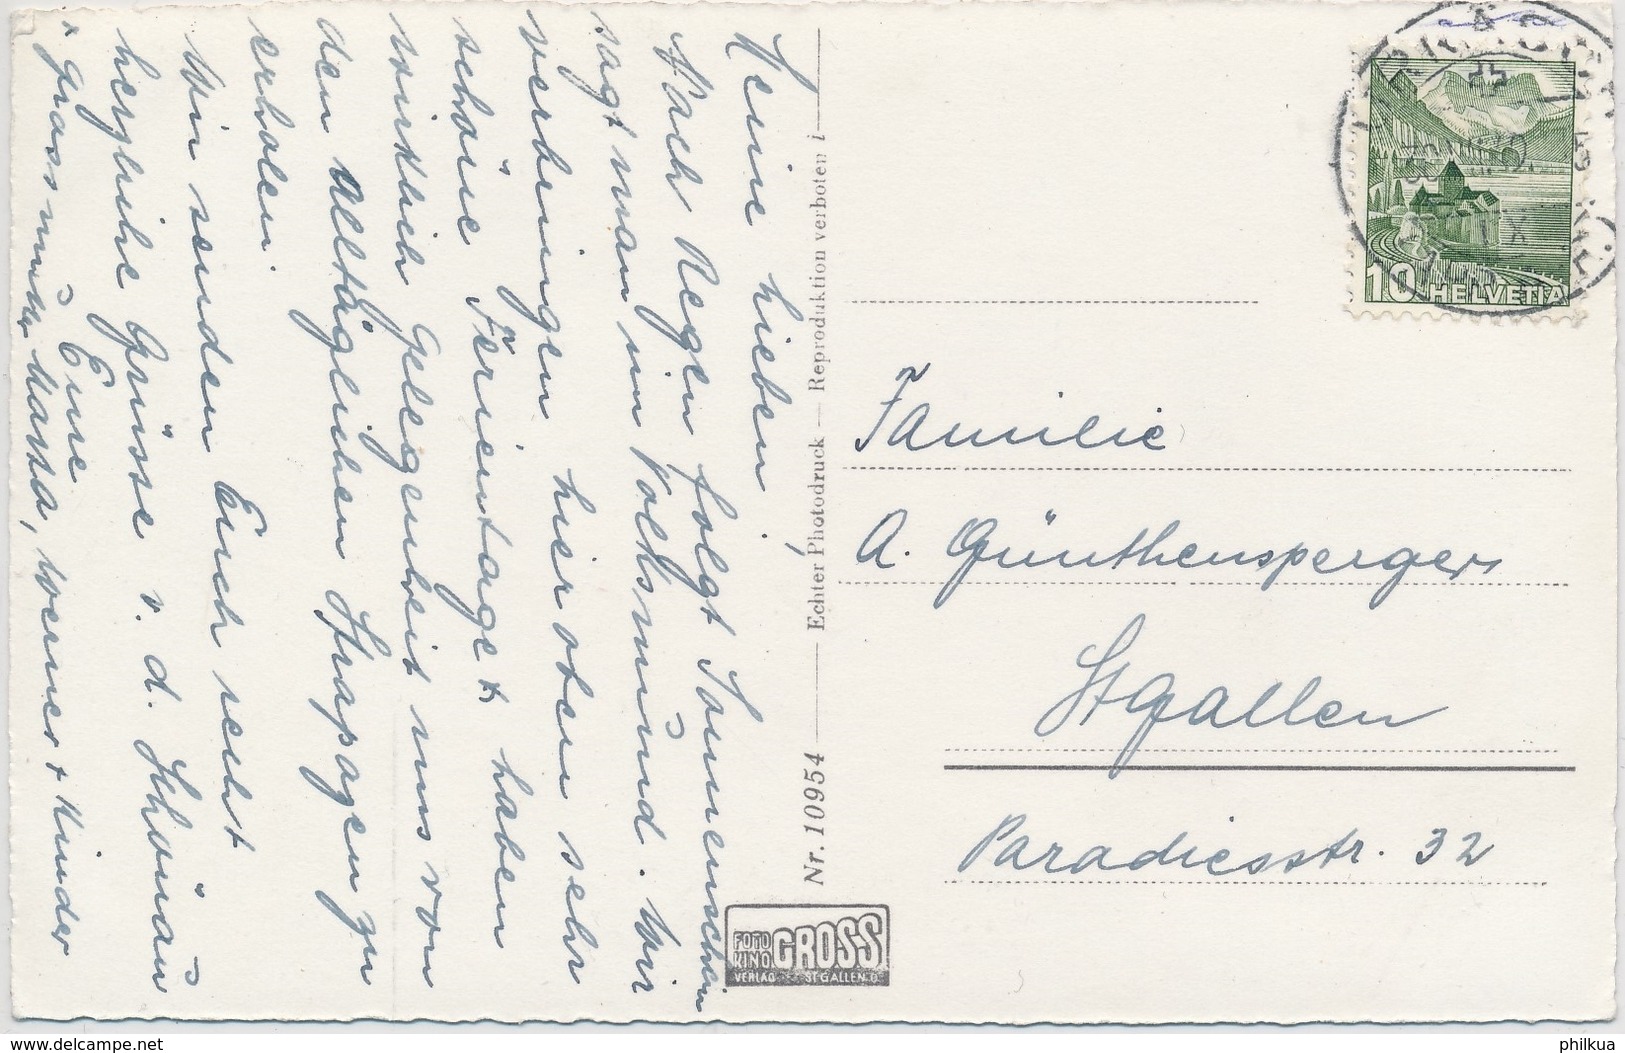 Meine lieben
Nach Regen folgt Sonnenschein
sagt man im Volksmund. Wir
verbringen hier oben sehr
schöne Ferientage & haben
wirklich Gelegenheit uns von
den Alltäglichen Strapazen zu
erholen
Wir senden Euch recht
herzliche Grüsse v. d. Schönau
Eure
Martha, Werner & Kinder
& Grossmutter
Nr. 10954 — Echter Photodruck — Reproduktion verboten
FOTO KINO GROSS
VERLAG ST. GALLEN
10 HELVETIA
Familie
A. Günthensperger
St gallen
Paradiesstr. 32
delcampe.net
philkua